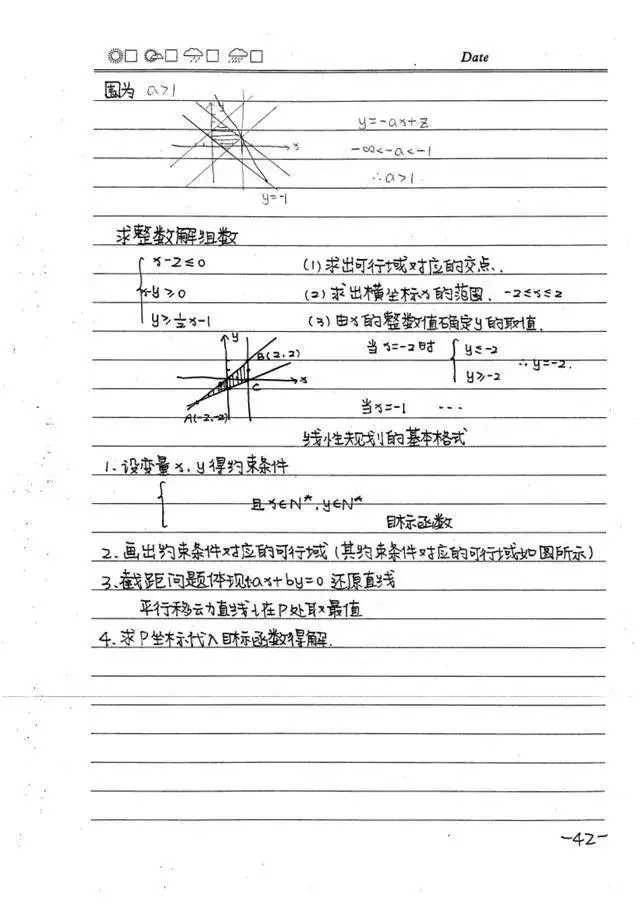 Date
因为 a>1
y
x
y=-1
y=-ax+z
-∞<-a<-1
∴a>1
求整数解组数
{ x-2≤0
x-y≥0
y≥½x-1
(1)求出可行域对应的交点.
(2)求出横坐标x的范围. -2≤x≤2
(3)由x的整数值确定y的取值.
y
B(2,2)
x
C
A(-2,-2)
当x=-2时 { y≤-2
y≥-2
∴y=-2.
当x=-1 ····
线性规划的基本格式
1.设变量x,y得约束条件
{ 且x∈N*,y∈N*
目标函数
2.画出约束条件对应的可行域(其约束条件对应的可行域如图所示)
3.截距问题体现ax+by=0还原直线
平行移动直线l在P处取最值
4.求P坐标代入目标函数得解.
-42-